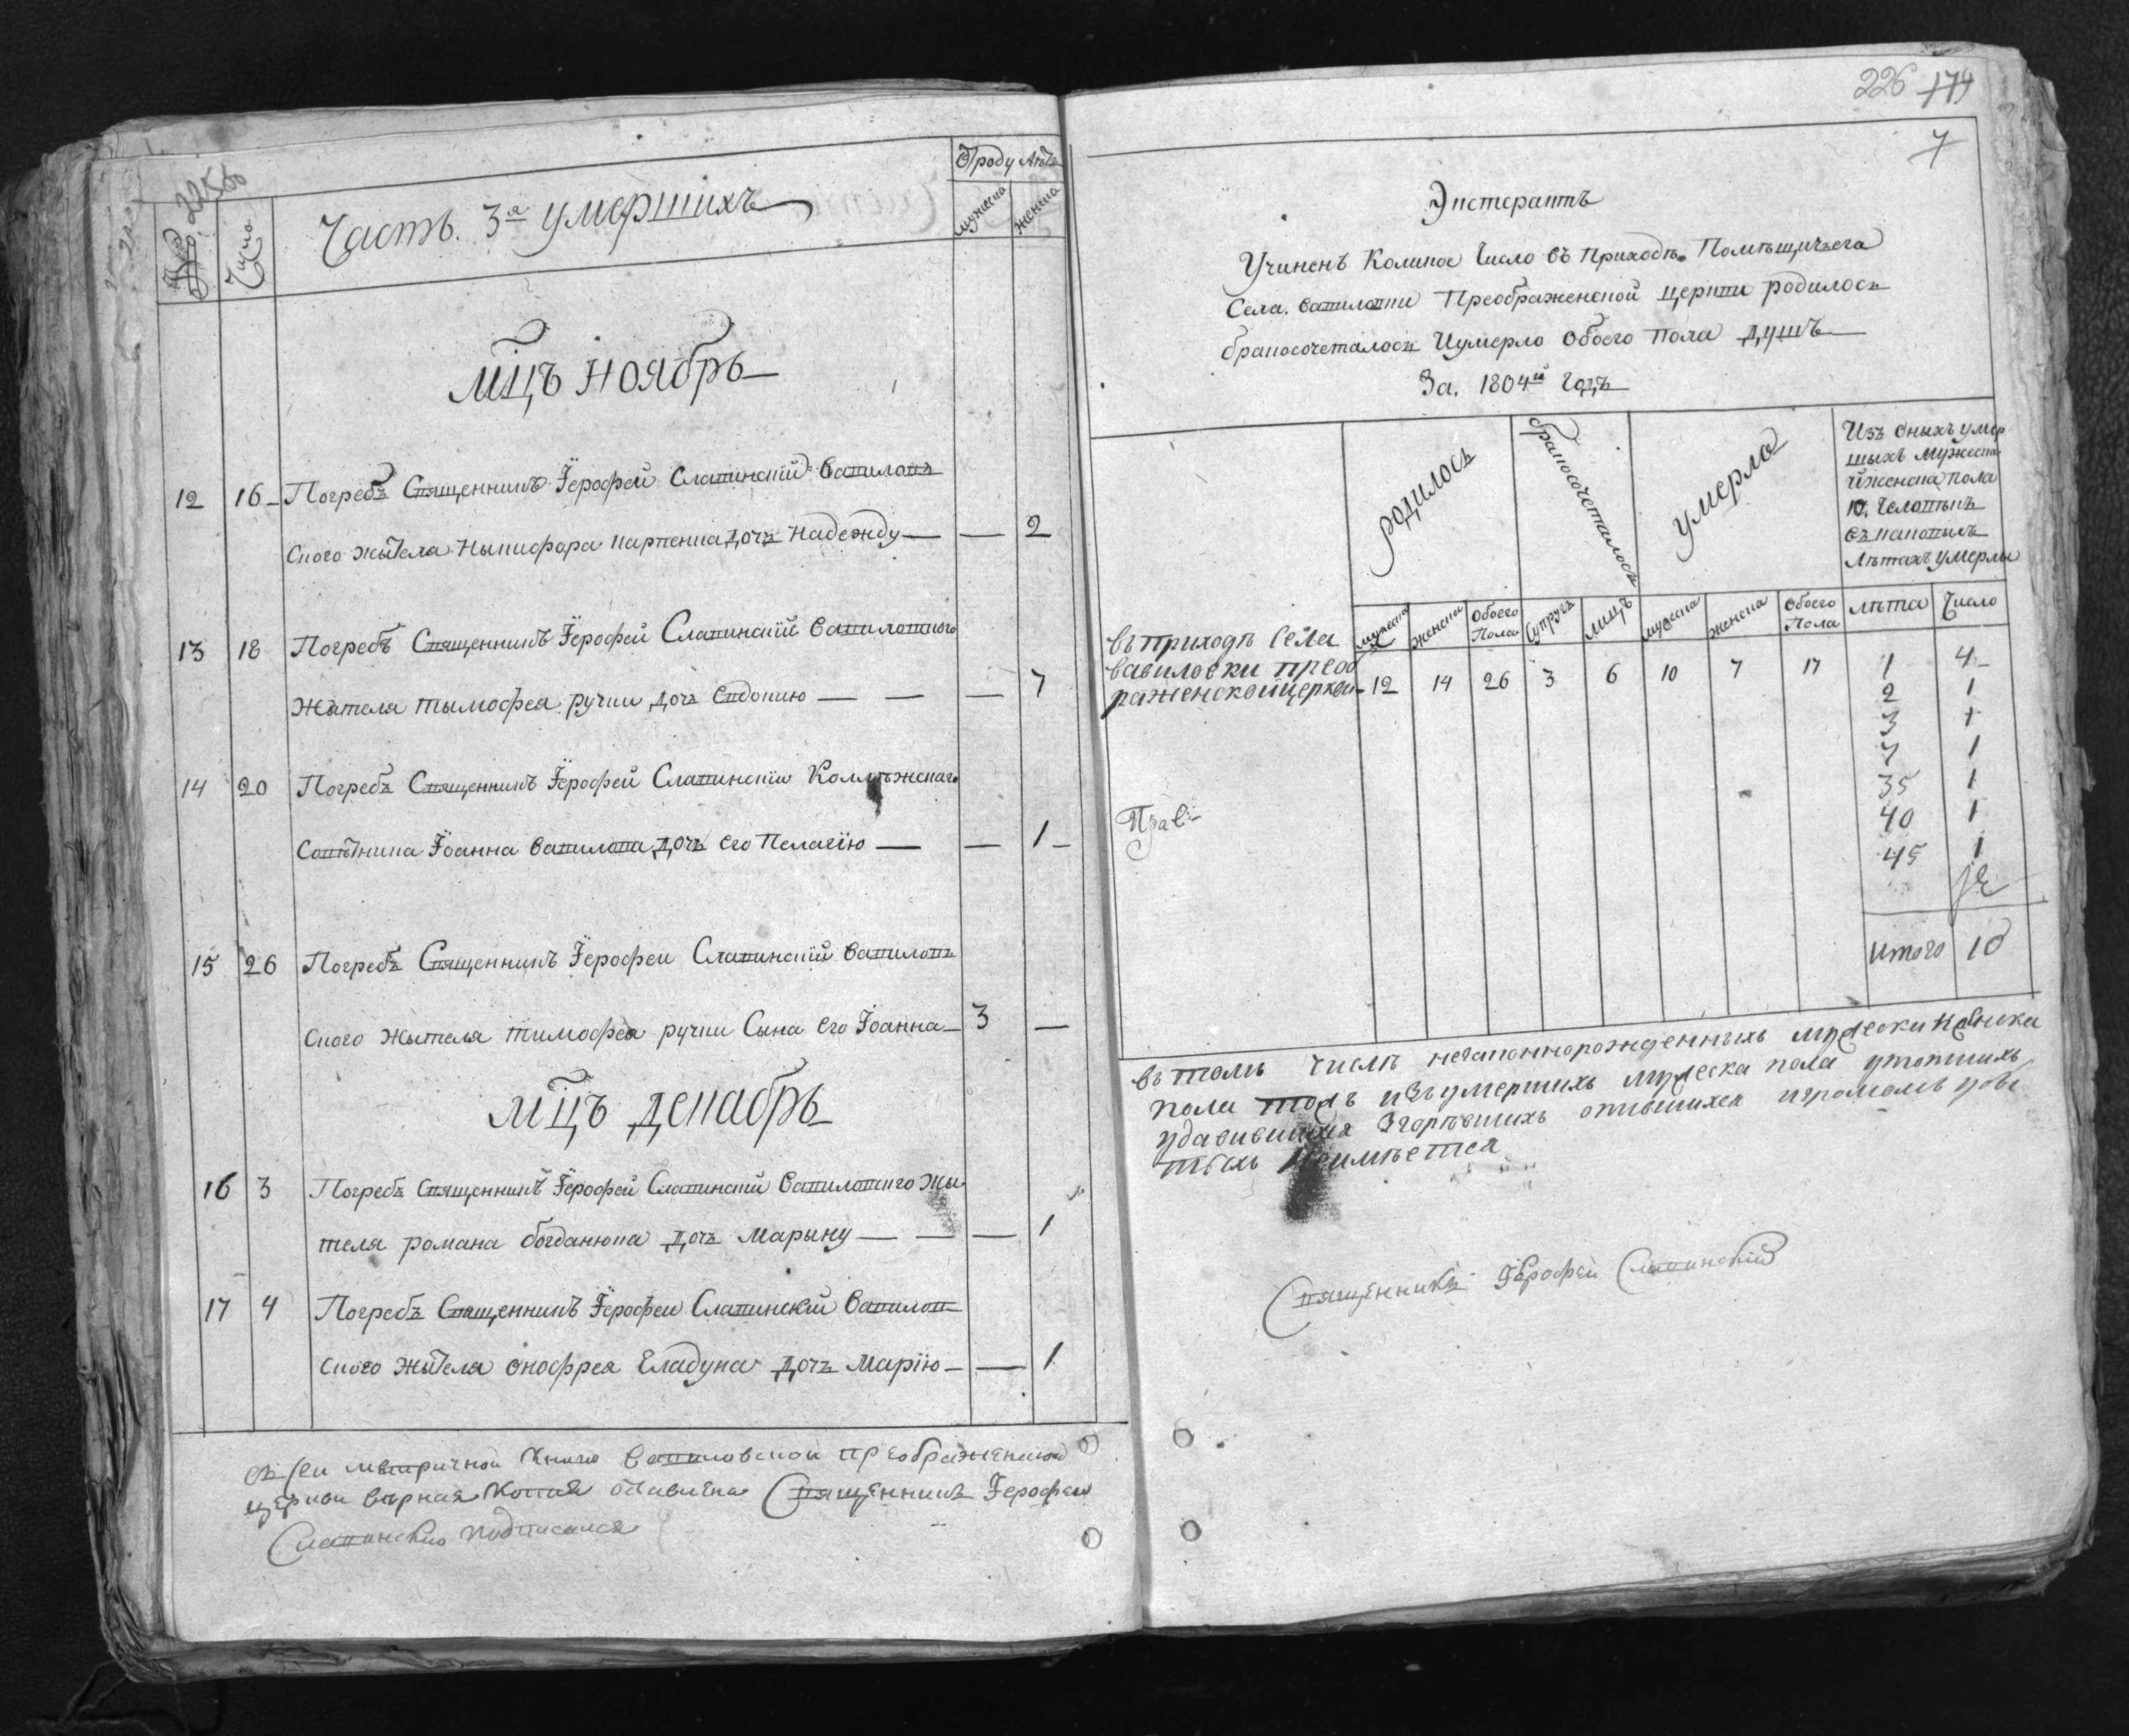 Число
Часть. 3я умершихъ
Отроду лѣтъ
мужеска
женска
мцъ ноябрь
12 16 Погребъ Священникъ Іерофей Славинскій Вавиловъ
ского жытеля Ныкифора дочъ Надежду — — 2
13 18 Погребъ Священникъ Іерофей Славинскій Вавиловского
Жытеля Тымофея ручки дочъ Евдокию — — — 7
14 20 Погребъ Священникъ Іерофей Славинскій Коллѣжскаго
Совѣтника Іоанна Вавилова дочъ его Пелагію — — 1
15 26 Погребъ Священникъ Іерофеи Славинскій Вавиловъ
ского Жытеля тимофея ручки Сына его Іоанна 3 —
мцъ декабрь
16 3 Погребъ Священникъ Іерофей Славинскій Вавиловского Жы
теля романа богданюка дочъ марыну — — — 1
17 4 Погребъ Священникъ Іерофеи Славинскій Вавилов
ского жытеля онофрея Гладуна дочъ марію — — 1
сей метричной книги Вавиловской преображенской
церкви вѣрная копия оставлена Священникъ Іерофеи
Славинскій подписался
226 174
7
Экстерактъ
Учиненъ Коликое Число въ приходѣ Помѣщичьега
Села. Вавиловки Преображенской церкви родилось
бракосочеталось Иумерло Обоего Пола душъ
За. 1804й Годъ
родилось
бракосочеталось
умерло
Изъ оныхъ умер
шыхъ Мужеска
йженска пола
10. Человѣкъ
въ каковыхъ
Лѣтахъ умерлы
мужеска женска Обоего Пола Супругъ лицъ мужеска женска Обоего Пола лѣта Число
въ приходѣ села
вавиловки преоб
раженской церкви 12 14 26 3 6 10 7 17 1 4
2 1
3 1
7 1
35 1
40 1
45 1
Итого 10
въ томъ числѣ незаконнорожденныхъ
пола изъ умершихъ мужеска пола утопшихъ
удавившихся Згорѣвшихъ опившихся игромомъ убы
тыхъ неимѣется
Священникъ Іерофей Славинскій